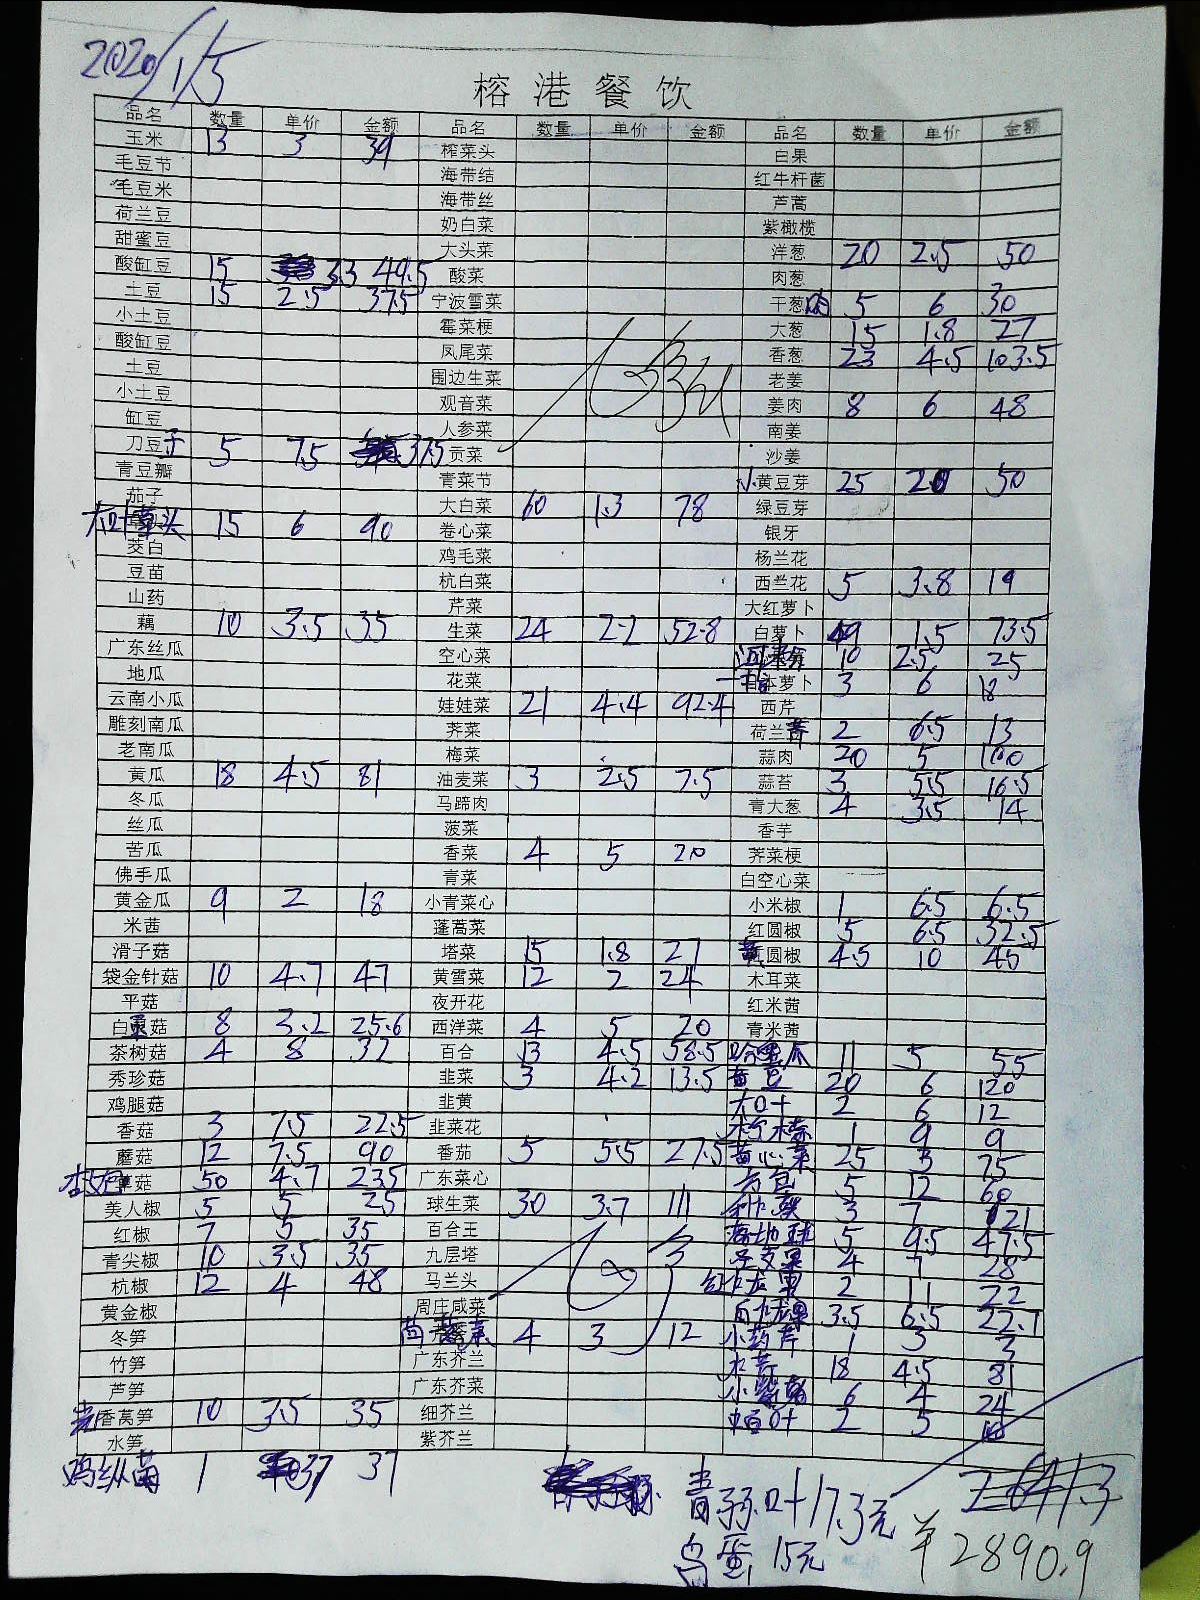 2020/1/5
榕港餐饮
品名 数量 单价 金额 品名 数量 单价 金额 品名 数量 单价 金额
玉米 13 3 39 榨菜头 白果
毛豆节 海带结 红牛杆菌
毛豆米 海带丝 芦蒿
荷兰豆 奶白菜 紫橄榄
甜蜜豆 大头菜 洋葱 20 2.5 50
酸缸豆 15 3.3 49.5 酸菜 肉葱
土豆 15 2.5 37.5 宁波雪菜 干葱肉 5 6 30
小土豆 霉菜梗 大葱 15 1.8 27
酸缸豆 凤尾菜 香葱 23 4.5 103.5
土豆 围边生菜 老姜
小土豆 观音菜 姜肉 8 6 48
缸豆 人参菜 南姜
刀豆子 5 7.5 37.5 贡菜 沙姜
青豆瓣 青菜节 小黄豆芽 25 2.0 50
茄子 大白菜 60 1.3 78 绿豆芽
草头 15 6 90 卷心菜 银牙
茭白 鸡毛菜 杨兰花
豆苗 杭白菜 西兰花 5 3.8 19
山药 芹菜 大红萝卜
藕 10 3.5 35 生菜 24 2.2 52.8 白萝卜 49 1.5 73.5
广东丝瓜 空心菜 10 2.5 25
地瓜 花菜 萝卜 3 6 18
云南小瓜 娃娃菜 21 4.4 92.4 西芹
雕刻南瓜 荠菜 荷兰芹 2 6.5 13
老南瓜 梅菜 蒜肉 20 5 100
黄瓜 18 4.5 81 油麦菜 3 2.5 7.5 蒜苔 3 5.5 16.5
冬瓜 马蹄肉 青大葱 4 3.5 14
丝瓜 菠菜 香芋
苦瓜 香菜 4 5 20 荠菜梗
佛手瓜 青菜 白空心菜
黄金瓜 9 2 18 小青菜心 小米椒 1 6.5 6.5
米茜 蓬蒿菜 红圆椒 5 6.5 32.5
滑子菇 塔菜 15 1.8 27 黄圆椒 4.5 10 45
袋金针菇 10 4.7 47 黄雪菜 12 2 24 木耳菜
平菇 夜开花 红米茜
白灵菇 8 3.2 25.6 西洋菜 4 5 20 青米茜
茶树菇 4 8 32 百合 13 4.5 58.5 哈密瓜 11 5 55
秀珍菇 韭菜 3 4.2 13.5 黄豆 20 6 120
鸡腿菇 韭黄 大叶 2 6 12
香菇 3 7.5 22.5 韭菜花 柠檬 1 9 9
蘑菇 12 7.5 90 番茄 5 5.5 27.5 黄心菜 25 3 75
杏鲍菇 50 4.7 235 广东菜心 5 12 60
美人椒 5 5 25 球生菜 30 3.7 111 3 7 21
红椒 7 5 35 百合王 5 9.5 47.5
青尖椒 10 3.5 35 九层塔 圣女果 4 7 28
杭椒 12 4 48 马兰头 红火龙果 2 11 22
黄金椒 周庄咸菜 白火龙果 3.5 6.5 22.7
冬笋 4 3 12 小药芹 1 3 3
竹笋 广东芥兰 水芹 18 4.5 81
芦笋 广东芥菜 6 4 24
香莴笋 10 3.5 35 细芥兰 2 5 10
水笋 紫芥兰
鸡纵菌 1 37 37
青 叶17.3元
鸟蛋 15元
2641.3
¥2890.9